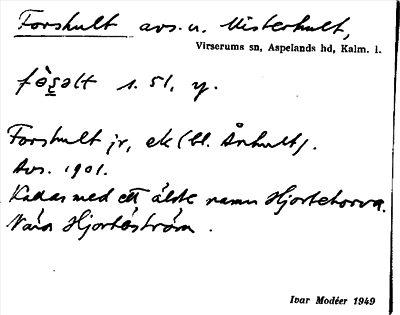 Forshult avs. u. Misterhult,
Virserums sn, Aspelands hd, Kalm. l.
s. 51, y.
Forshult jr, ek (bl. Århult).
Avs. 1901.
Kallas med ett äldre namn Hjortehorva.
Nära Hjorteström.
Ivar Modéer 1949